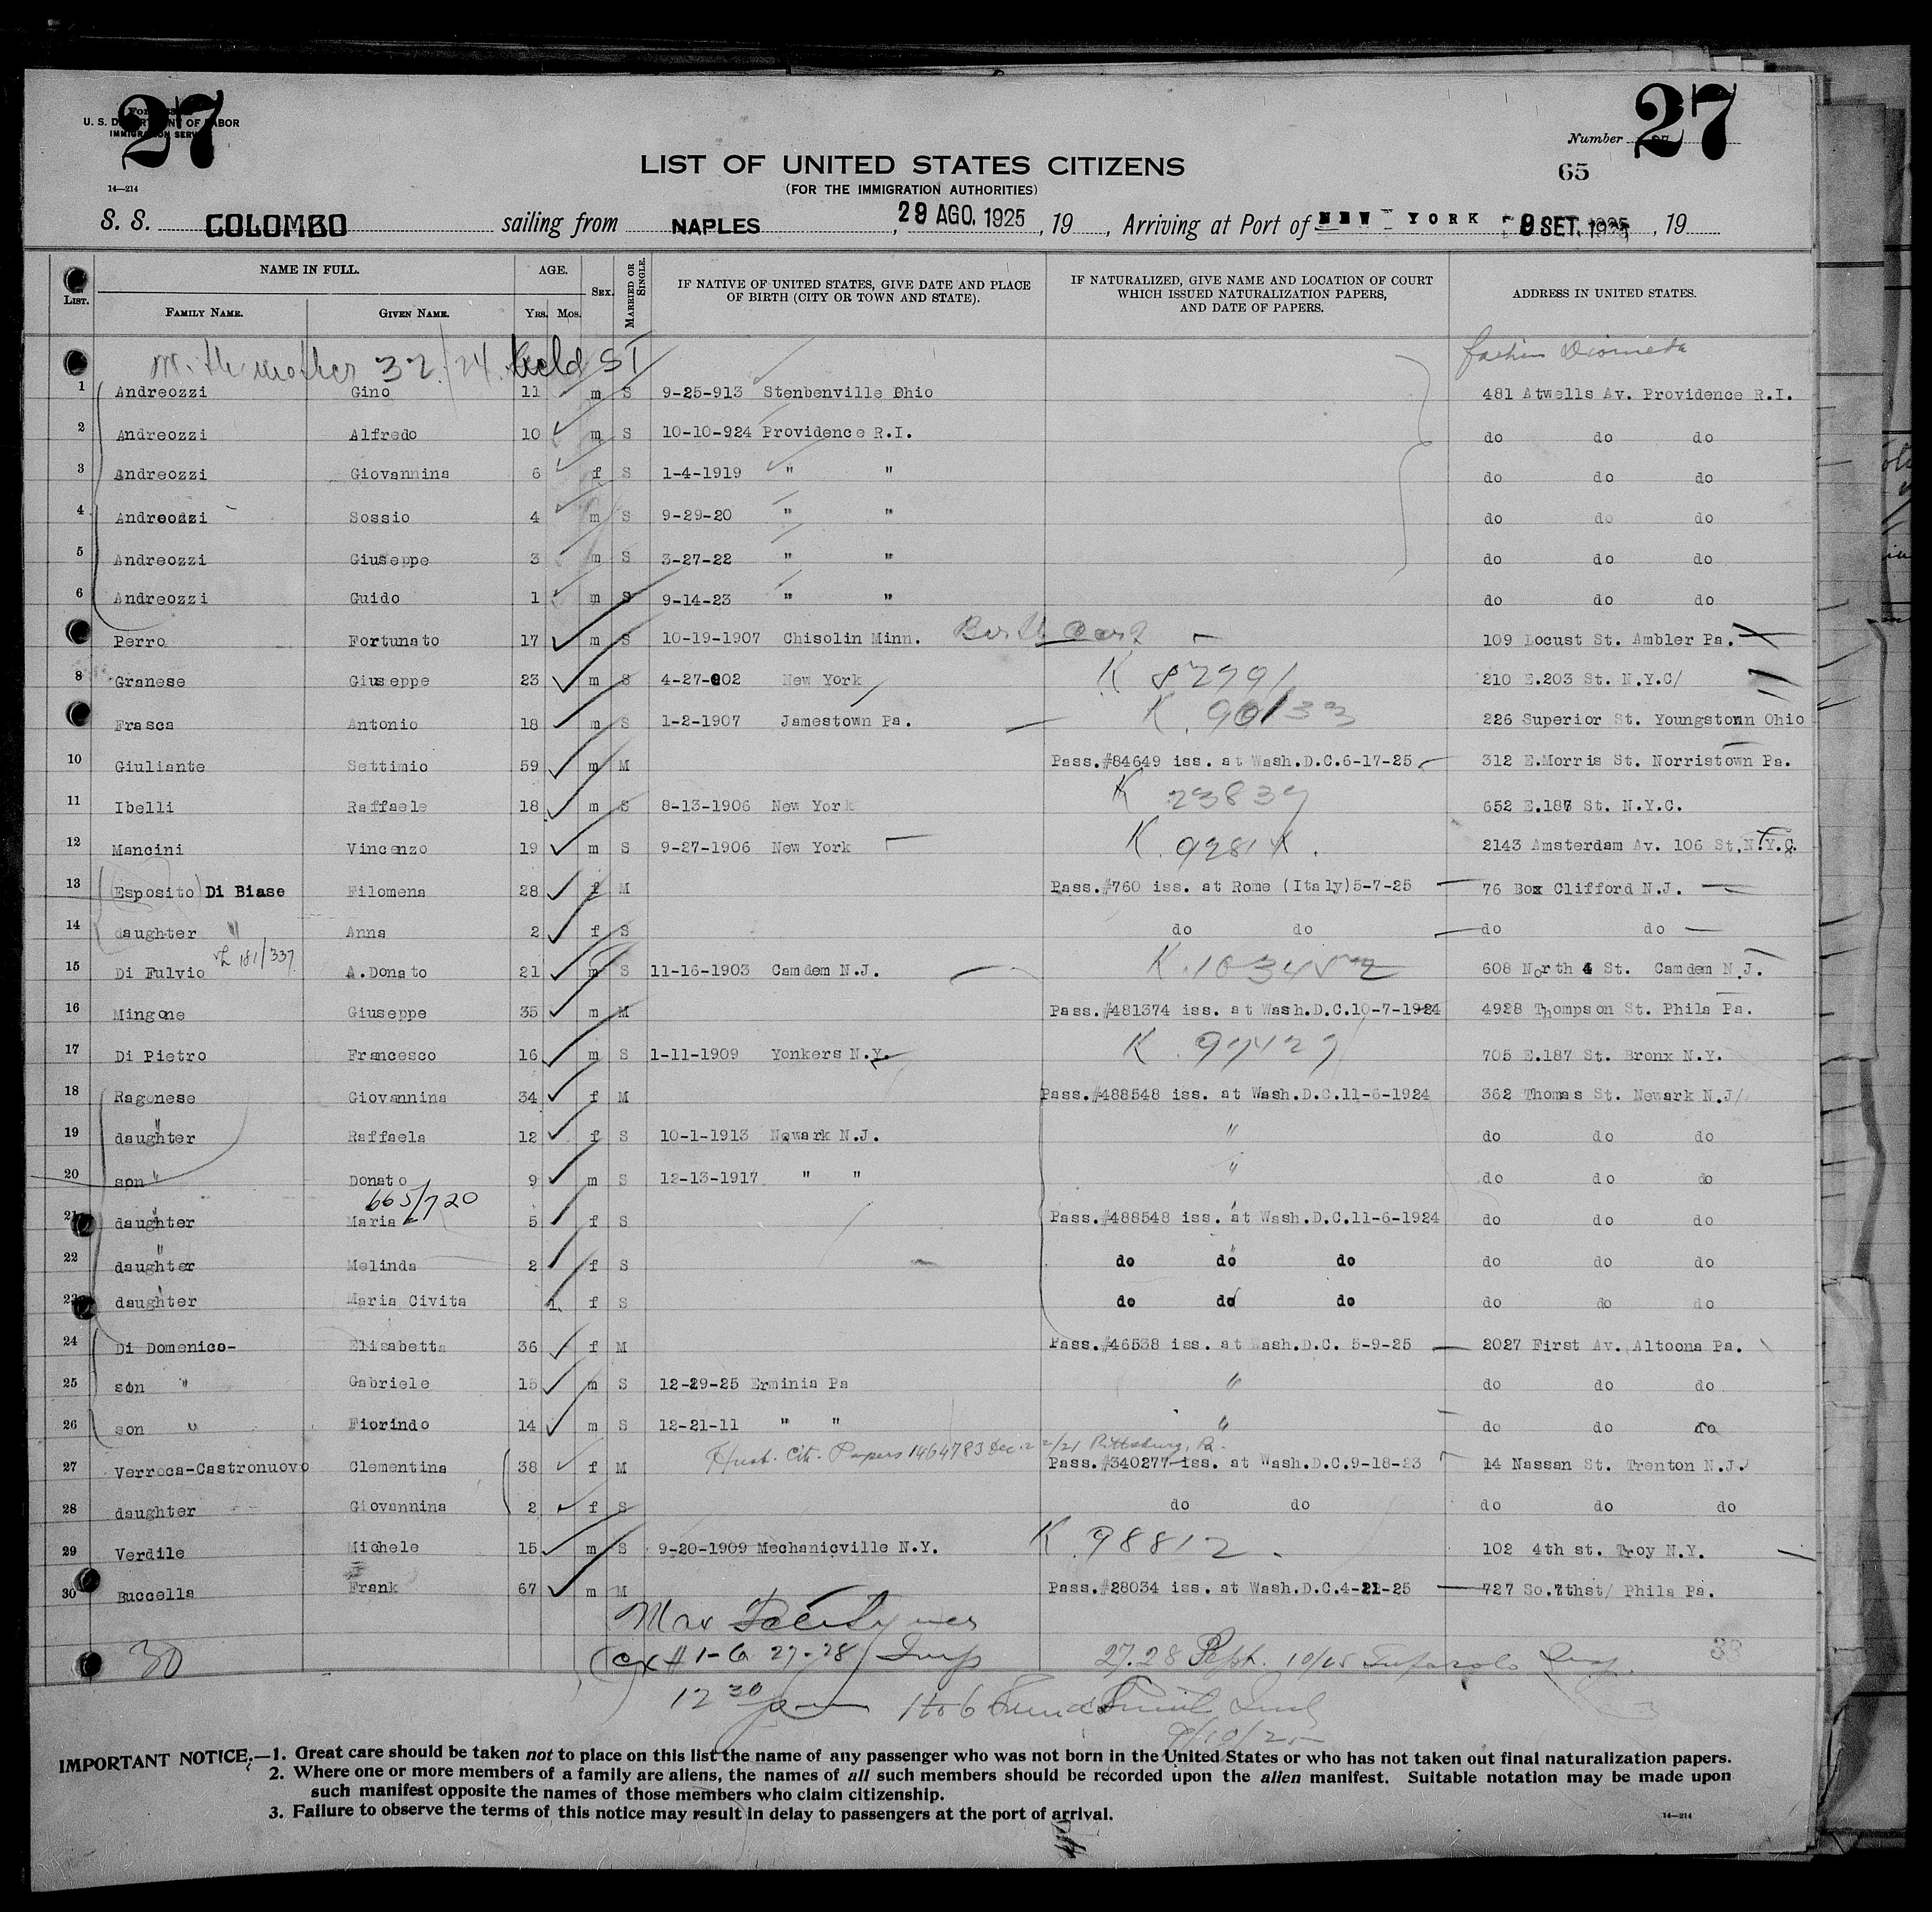 27
27
Form
U. S. DEPARTMENT OF LABOR
IMMIGRATION SERVICE
Number
65
14—214
LIST OF UNITED STATES CITIZENS
(FOR THE IMMIGRATION AUTHORITIES)
S. S. COLOMBO sailing from NAPLES, 29 AGO. 1925, 19 , Arriving at Port of NEW YORK 9 SET. 1925, 19
LIST. NAME IN FULL. AGE. SEX. MARRIED OR SINGLE. IF NATIVE OF UNITED STATES, GIVE DATE AND PLACE OF BIRTH (CITY OR TOWN AND STATE). IF NATURALIZED, GIVE NAME AND LOCATION OF COURT WHICH ISSUED NATURALIZATION PAPERS, AND DATE OF PAPERS. ADDRESS IN UNITED STATES.
FAMILY NAME. GIVEN NAME. YRS. MOS.
mother 32/24 held SI father Diomede
1 Andreozzi Gino 11 m S 9-25-913 Stenbenville Ohio 481 Atwells Av. Providence R.I.
2 Andreozzi Alfredo 10 m S 10-10-924 Providence R.I. do do do
3 Andreozzi Giovannina 6 f S 1-4-1919 " " do do do
4 Andreodzi Sossio 4 m S 9-29-20 " " do do do
5 Andreozzi Giuseppe 3 m S 3-27-22 " " do do do
6 Andreozzi Guido 1 m S 9-14-23 " " do do do
Perro Fortunato 17 m S 10-19-1907 Chisolin Minn. Birth Cert 109 Locust St. Ambler Pa.
8 Granese Giuseppe 23 m S 4-27-902 New York K 82991 210 E.203 St. N.Y.C/
Frasca Antonio 18 m S 1-2-1907 Jamestown Pa. K. 90133 226 Superior St. Youngstonn Ohio
10 Giuliante Settimio 59 m M Pass.#84649 iss. at Wash.D.C.6-17-25 312 E.Morris St. Norristown Pa.
11 Ibelli Raffaele 18 m S 8-13-1906 New York K 23839 652 E.187 St. N.Y.C.
12 Mancini Vincenzo 19 m S 9-27-1906 New York K. 2143 Amsterdam Av. 106 St.N.Y.C.
13 Esposito Di Biase Filomena 28 f M Pass.#760 iss. at Rome (Italy)5-7-25 76 Box Clifford N.J.
14 daughter " Anna 2 f S do do do do
181/337
15 Di Fulvio A.Donato 21 m S 11-16-1903 Camdem N.J. K. 608 North 4 St. Camden N.J.
16 Mingone Giuseppe 35 m M Pass.#481374 iss. at Wash.D.C.10-7-1924 4928 Thompson St. Phila Pa.
17 Di Pietro Francesco 16 m S 1-11-1909 Yonkers N.Y. K. 705 E.187 St. Bronx N.Y.
18 Ragonese Giovannina 34 f M Pass.#488548 iss. at Wash.D.C.11-6-1924 362 Thomas St. Newark N.J/
19 daughter " Raffaela 12 f S 10-1-1913 Newark N.J. " do do do
20 son " Donato 9 m S 12-13-1917 " " " do do do
665/720
21 daughter " Maria 5 f S Pass.#488548 iss. at Wash.D.C.11-6-1924 do do do
22 daughter " Melinda 2 f S do do do do do do
23 daughter " Maria Civita 1 f S do do do do do do
24 Di Domenico- Elisabetta 36 f M Pass.#46538 iss. at Wash.D.C. 5-9-25 2027 First Av. Altoona Pa.
25 son " Gabriele 15 m S 12-29-25 Erminia Pa " do do do
26 son " Fiorindo 14 m S 12-21-11 " " " do do do
Husb. Cit. Papers 1464783 Dec. 22/21 Pittsburg, Pa.
27 Verroca-Castronuovo Clementina 38 f M Pass.#340277 iss. at Wash.D.C.9-18-23 14 Nassan St. Trenton N.J.
28 daughter Giovannina 2 f S do do do do do
29 Verdile Michele 15 m S 9-20-1909 Mechanicville N.Y. K. 98812 102 4th st. Troy N.Y.
30 Buccella Frank 67 m M Pass.#28034 iss. at Wash.D.C.4-21-25 727 So.7thst/ Phila Pa.
Max
30 (ex # 1-6 27-28) Insp 27.28 10/25 Insp. 33
12 30 pm 1 to 6
9/10/25
IMPORTANT NOTICE.—1. Great care should be taken not to place on this list the name of any passenger who was not born in the United States or who has not taken out final naturalization papers.
2. Where one or more members of a family are aliens, the names of all such members should be recorded upon the alien manifest. Suitable notation may be made upon
such manifest opposite the names of those members who claim citizenship.
3. Failure to observe the terms of this notice may result in delay to passengers at the port of arrival.
14—214